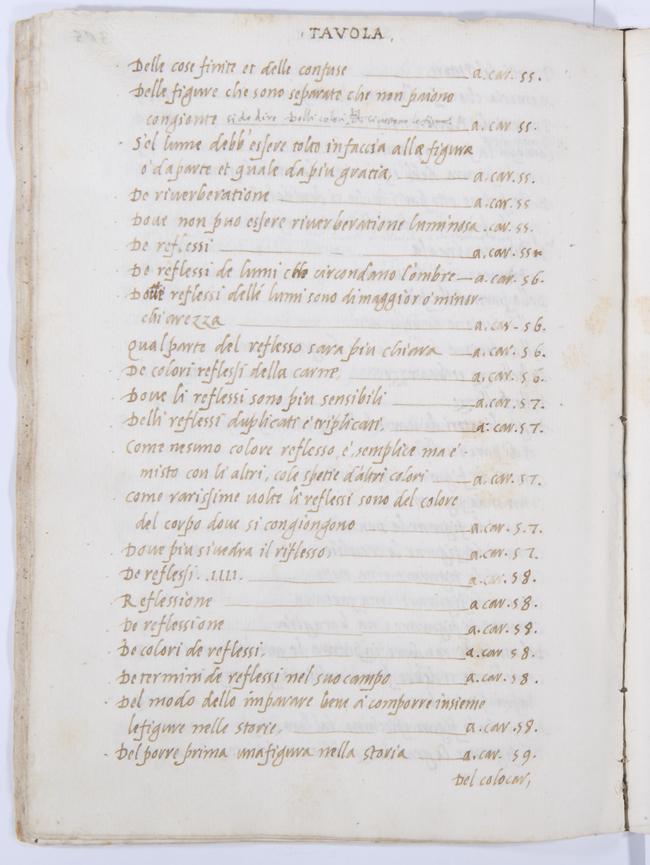 .TAVOLA.
Delle cose finite et delle confuse a. car. 55.
Delle figure che son separate che non paiono
congionte si de dire Delli colori a. car 55.
S'el lume debb'essere tolto in faccia alla figura
o' da parte et quale da piu gratia, a. car. 55.
De riverberatione a. car. 55
Doue non puo essere riuerberatione luminosa. car. 55.
De reflessi a. car. 55.
De reflessi de lumi che circondano l'ombre a. car. 56.
Doue reflessi delle lumi sono di maggior o' minor
chiarezza a. car. 56.
Qual parte del reflesso sara piu chiara a. car. 56.
De colori reflessi della carne, a. car. 56.
Doue li reflessi sono piu sensibili a. car. 57.
Delli reflessi duplicati e' triplicati, a. car. 57.
Come nesuno colore reflesso, e', semplice ma e'
misto con li altri, cole spetie d'altri colori a. car. 57.
Come rarissime uolte li reflessi sono del colore
del corpo doue si congiongono a. car. 57.
Doue piu si uedra il riflesso a. car. 57.
De reflessi. .IIII. a. car. 58.
Reflessione a. car. 58.
De reflessione a. car. 58.
De colori de reflessi. a. car. 58.
De termini de reflessi nel suo campo a. car. 58.
Del modo dello imparare bene a' comporre insieme
le figure nelle storie, a. car. 58.
Del porre prima una figura nella storia a. car. 59.
Del colocar,